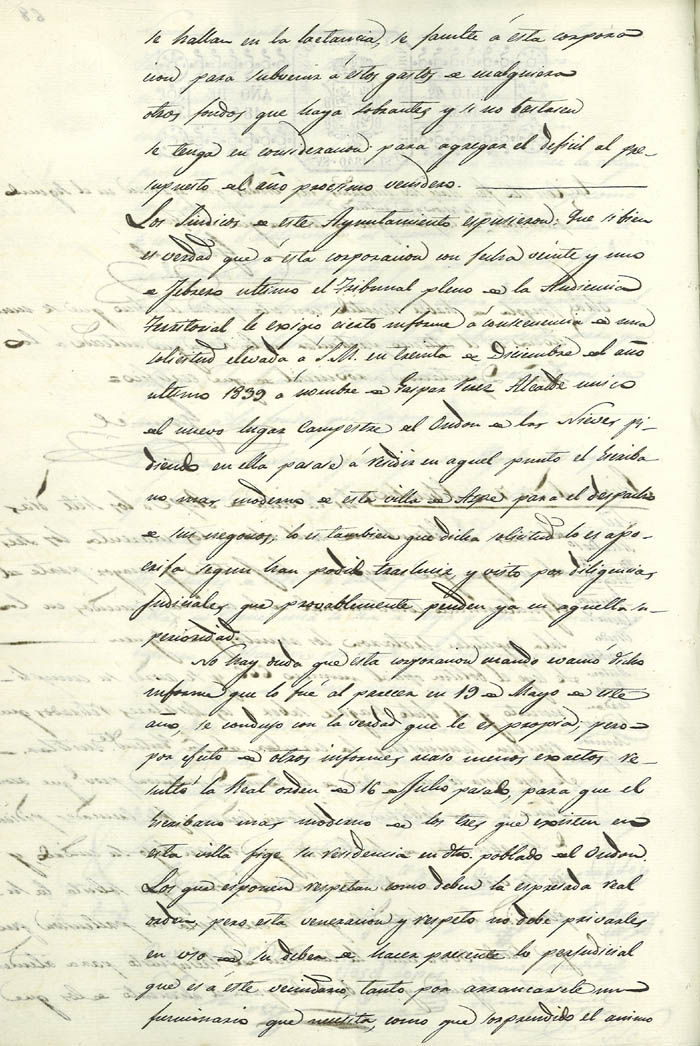 se hallan en la lactancia, se faculte á ésta corpora
cion para subvenir á éstos gastos de cualquiera
otros fondos que haya sobrantes, y si no bastasen
se tenga en consideracion para agregar el deficit al pre-
supuesto del año procsimo venidero.
Los Sindicos de este Ayuntamiento espusieron: Que si bien
es verdad que á ésta corporacion con fecha veinte y uno
de Febrero ultimo el Tribunal pleno de la Audiencia
Territorial le exigió cierto informe á consecuencia de una
solicitud elevada á S.M. en treinta de Diciembre del año
ultimo 1839 á nombre de Gaspar Alcalde unico
del nuevo lugar Campestre del Ondon de las Nieves pi-
diendo en ella pasase á residir en aquel punto el Escriba
no mas moderno de esta villa de Aspe para el despacho
de sus negocios; lo es tambien que dicha solicitud lo es apo-
crifa segun han podido traslucir, y visto por diligencias
Judiciales que provablemente penden ya en aquella su-
perioridad.
No hay duda que esta corporacion cuando evacuó dicho
informe que lo fué al parecer en 19 de Mayo de este
año, se condujo con la verdad que le es propia; pero
por efecto de otros informes acaso menos exactos re-
sultó la Real orden de 16 de Julio pasado, para que el
Escribano mas moderno de los tres que existen en
esta villa fige su residencia en dho. poblado del Ondon.
Los que esponen respetan como deben la espresada real
orden, pero esta veneracion y respeto no debe privarles
en uso de su deber de hacer presente lo perjudicial
que es á éste vecindario, tanto por arrancarsele un
funcionario que necesita, como que sorprendido el animo